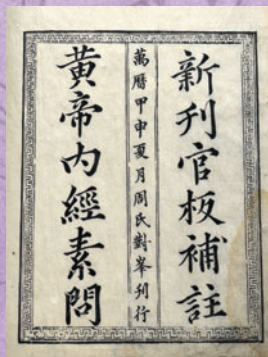 新刊官板補註
萬曆甲申夏月周氏對峯刊行
黃帝內經素問